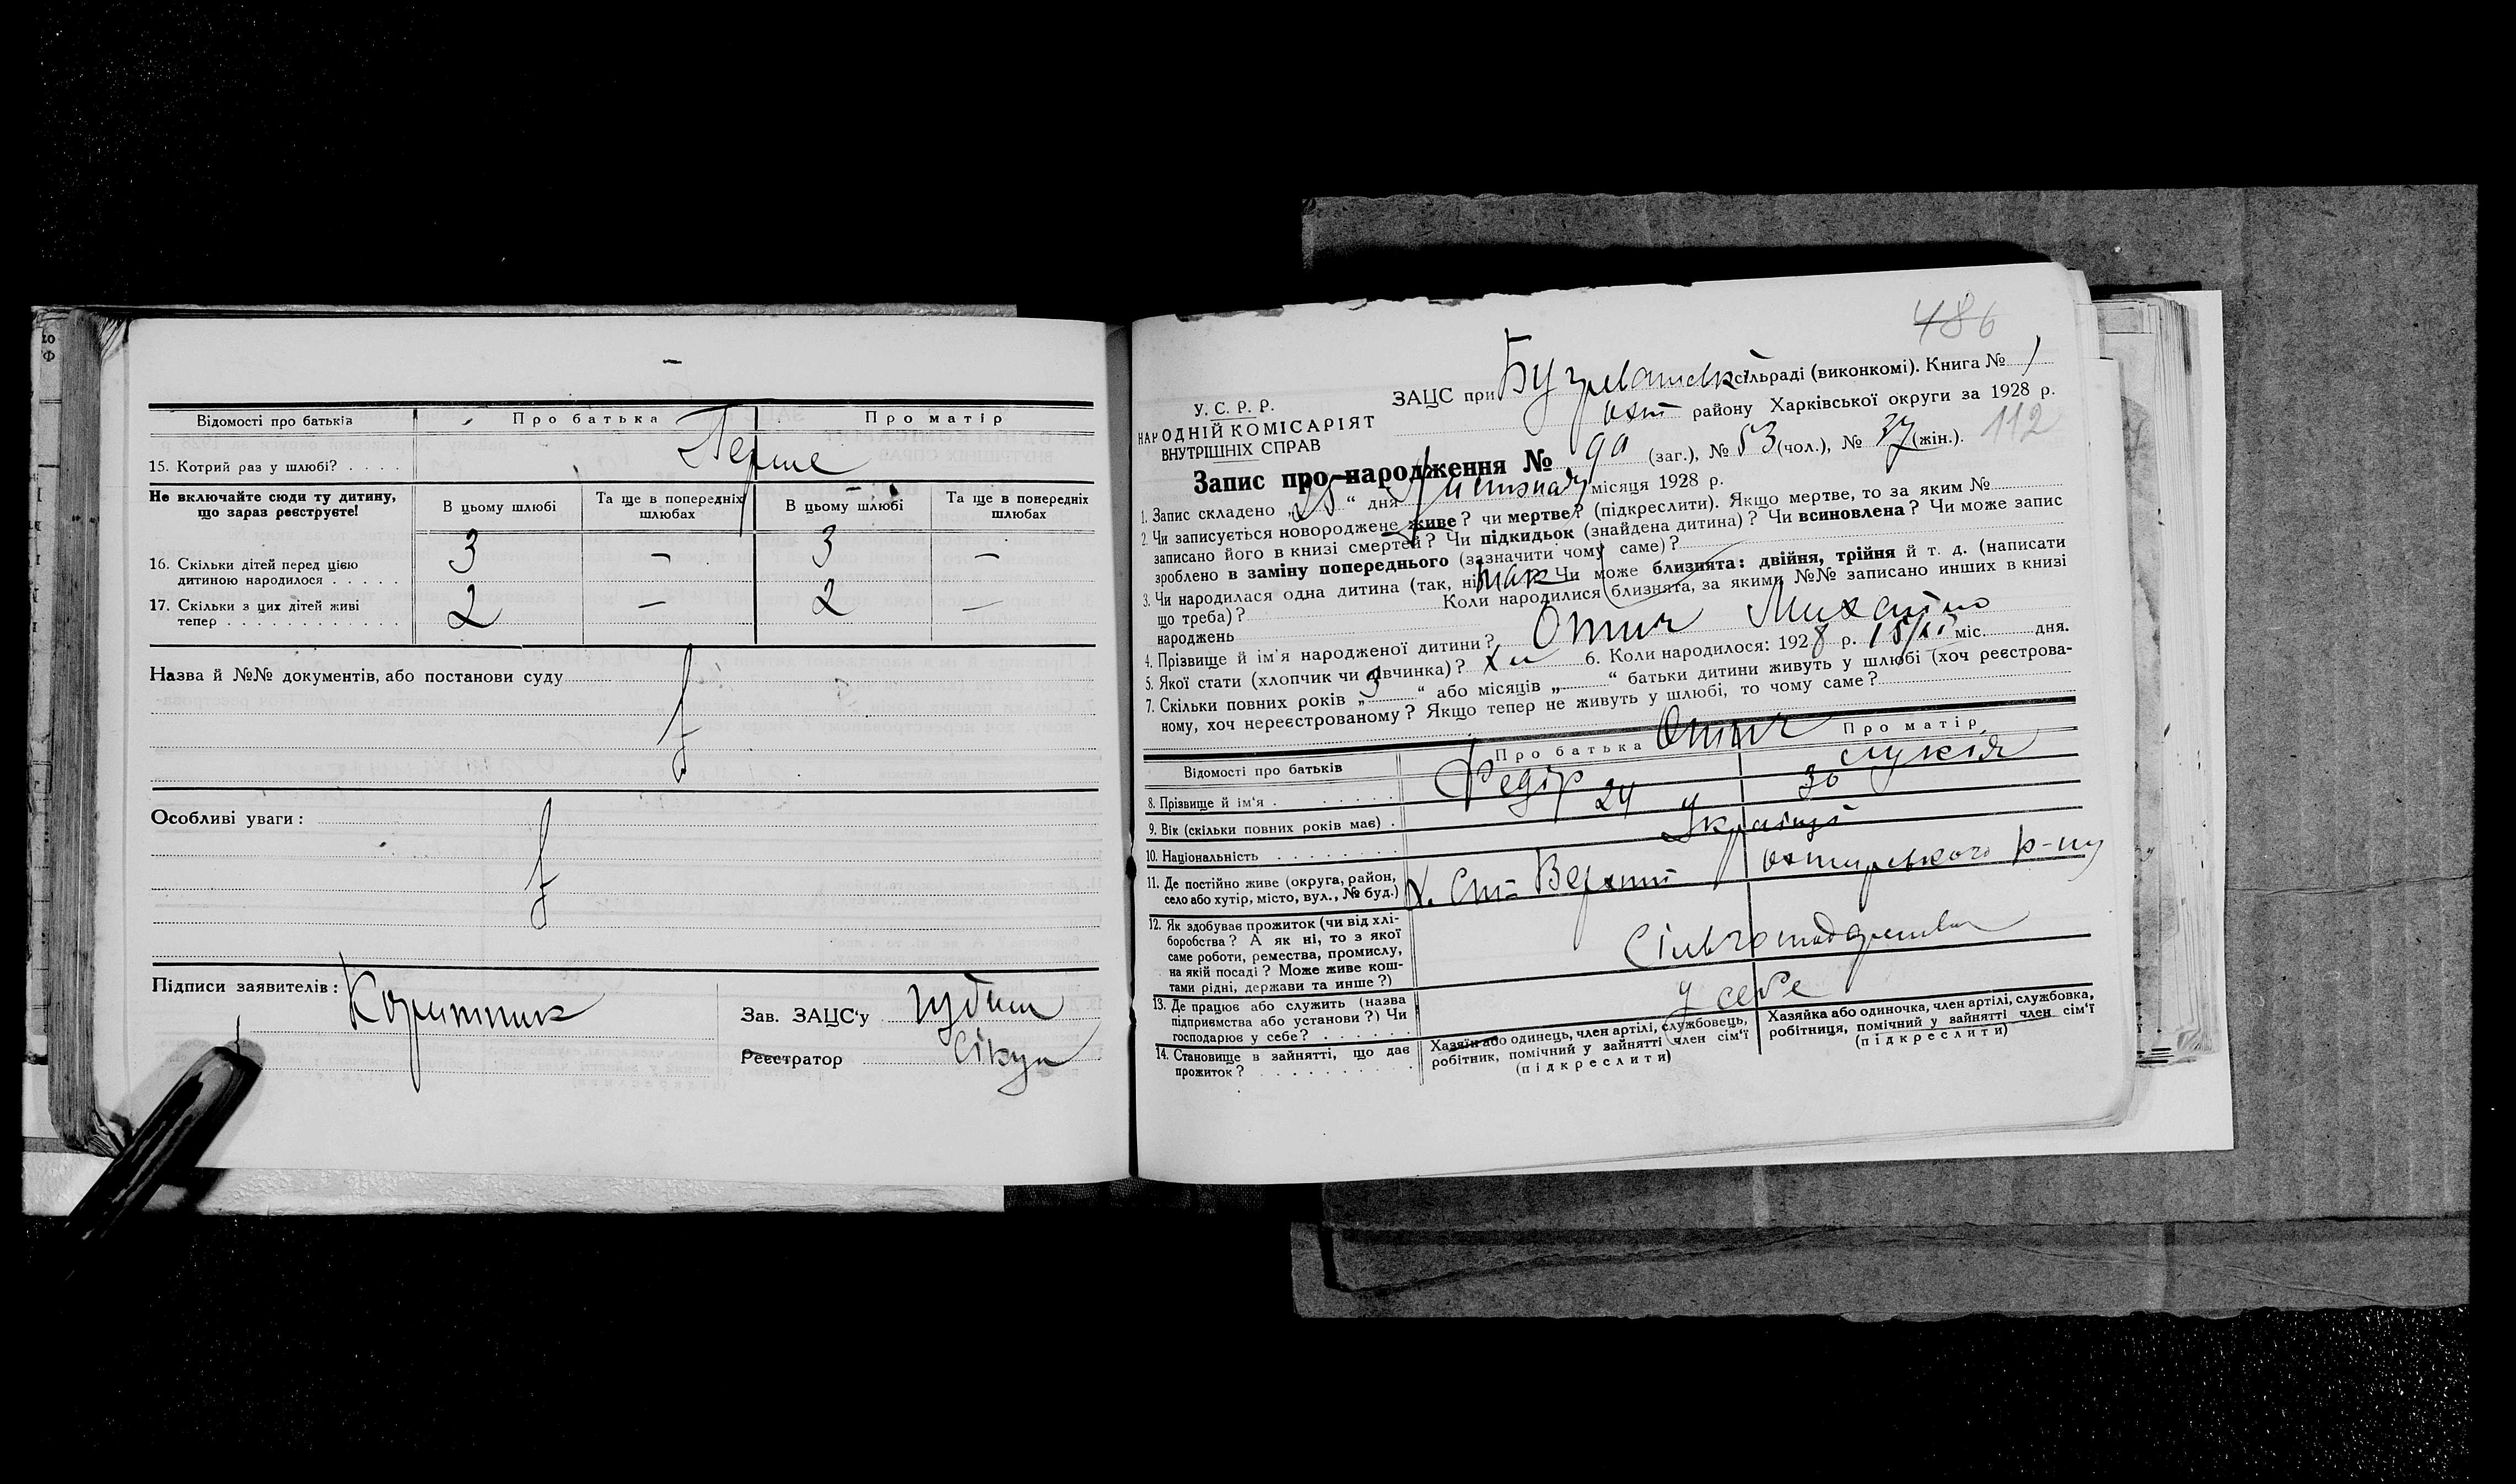 Відомості про батьків
Про батька
Про матір
15. Котрий раз у шлюбі? . . . .
Перше
Не включайте сюди ту дитину,
що зараз реєструєте!
В цьому шлюбі
Та ще в попередніх
шлюбах
В цьому шлюбі
Та ще в попередніх
шлюбах
16. Скільки дітей перед цією
дитиною народилося . . . . .
3 — 3 —
17. Скільки з цих дітей живі
тепер . . . . . . . . . . . .
2 — 2 —
Назва й №№ документів, або постанови суду
Особливі уваги:
Підписи заявителів:
Зав. ЗАЦС'у
Реєстратор
486
У. С. Р. Р.
НАРОДНІЙ КОМІСАРІЯТ
ВНУТРІШНІХ СПРАВ
ЗАЦС при сільраді (виконкомі). Книга № 1
охт району Харківської округи за 1928 р.
112
Запис про народження № 90 (заг.), № 53 (чол.), № 37 (жін.).
1. Запис складено „25“ дня Листопаду місяця 1928 р.
2. Чи записується новороджене живе? чи мертве? (підкреслити). Якщо мертве, то за яким №
записано його в книзі смертей? Чи підкидьок (знайдена дитина)? Чи всиновлена? Чи може запис
зроблено в заміну попереднього (зазначити чому саме)?
3. Чи народилася одна дитина (так, ні) так Чи може близнята: двійня, трійня й т. д. (написати
що треба)? Коли народилися близнята, за якими №№ записано инших в книзі
народжень
4. Прізвище й ім'я народженої дитини? Отич Михайло
5. Якої стати (хлопчик чи дівчинка)? хл 6. Коли народилося: 1928 р. 15/XI міс. дня.
7. Скільки повних років „3“ або місяців „ “ батьки дитини живуть у шлюбі (хоч реєстрова-
ному, хоч нереєстрованому? Якщо тепер не живуть у шлюбі, то чому саме?
Відомості про батьків
Про батька
Про матір
Отич
8. Прізвище й ім'я . . . . . .
Федір Лукія
9. Вік (скільки повних років має) .
24 30
10. Національність . . . . . . . .
Українці
11. Де постійно живе (округа, район,
село або хутір, місто, вул., № буд.)
х. Охтирського р-ну
12. Як здобуває прожиток (чи від хлі-
боробства? А як ні, то з якої
саме роботи, ремества, промислу,
на якій посаді? Може живе кош-
тами рідні, держави та инше?)
13. Де працює або служить (назва
підприємства або установи?) Чи
господарює у себе? . . . . . .
у себе
14. Становище в зайнятті, що дає
прожиток? . . . . . . . . . .
Хазяїн або одинець, член артілі, службовець,
робітник, помічний у зайнятті член сім'ї
(підкреслити)
Хазяйка або одиночка, член артілі, службовка,
робітниця, помічний у зайнятті член сім'ї
(підкреслити)